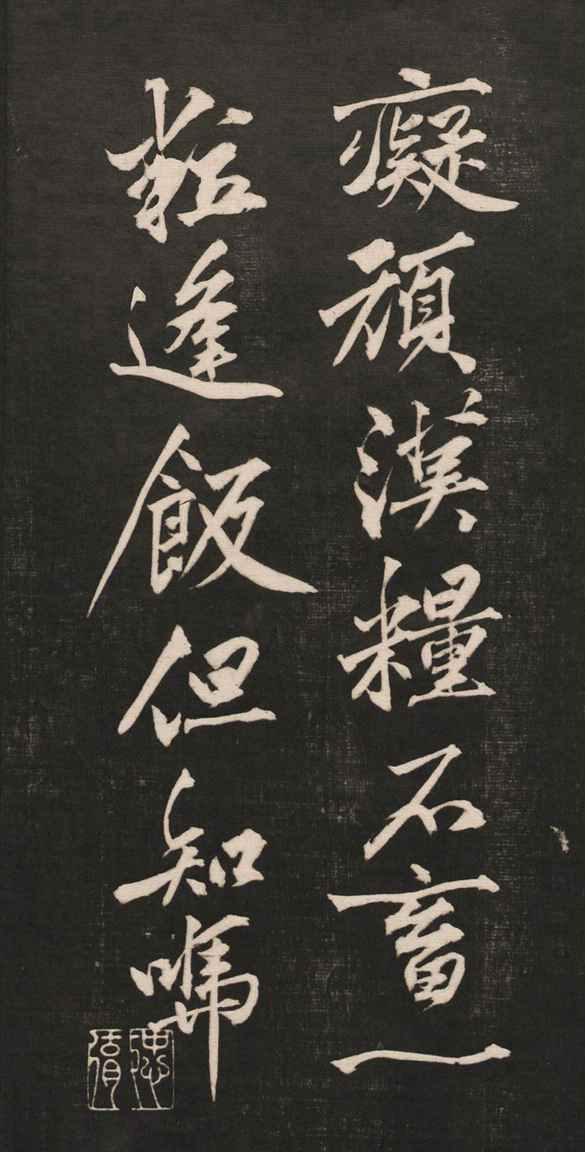 癡頑漢糧不畜一
粒逢飯但知